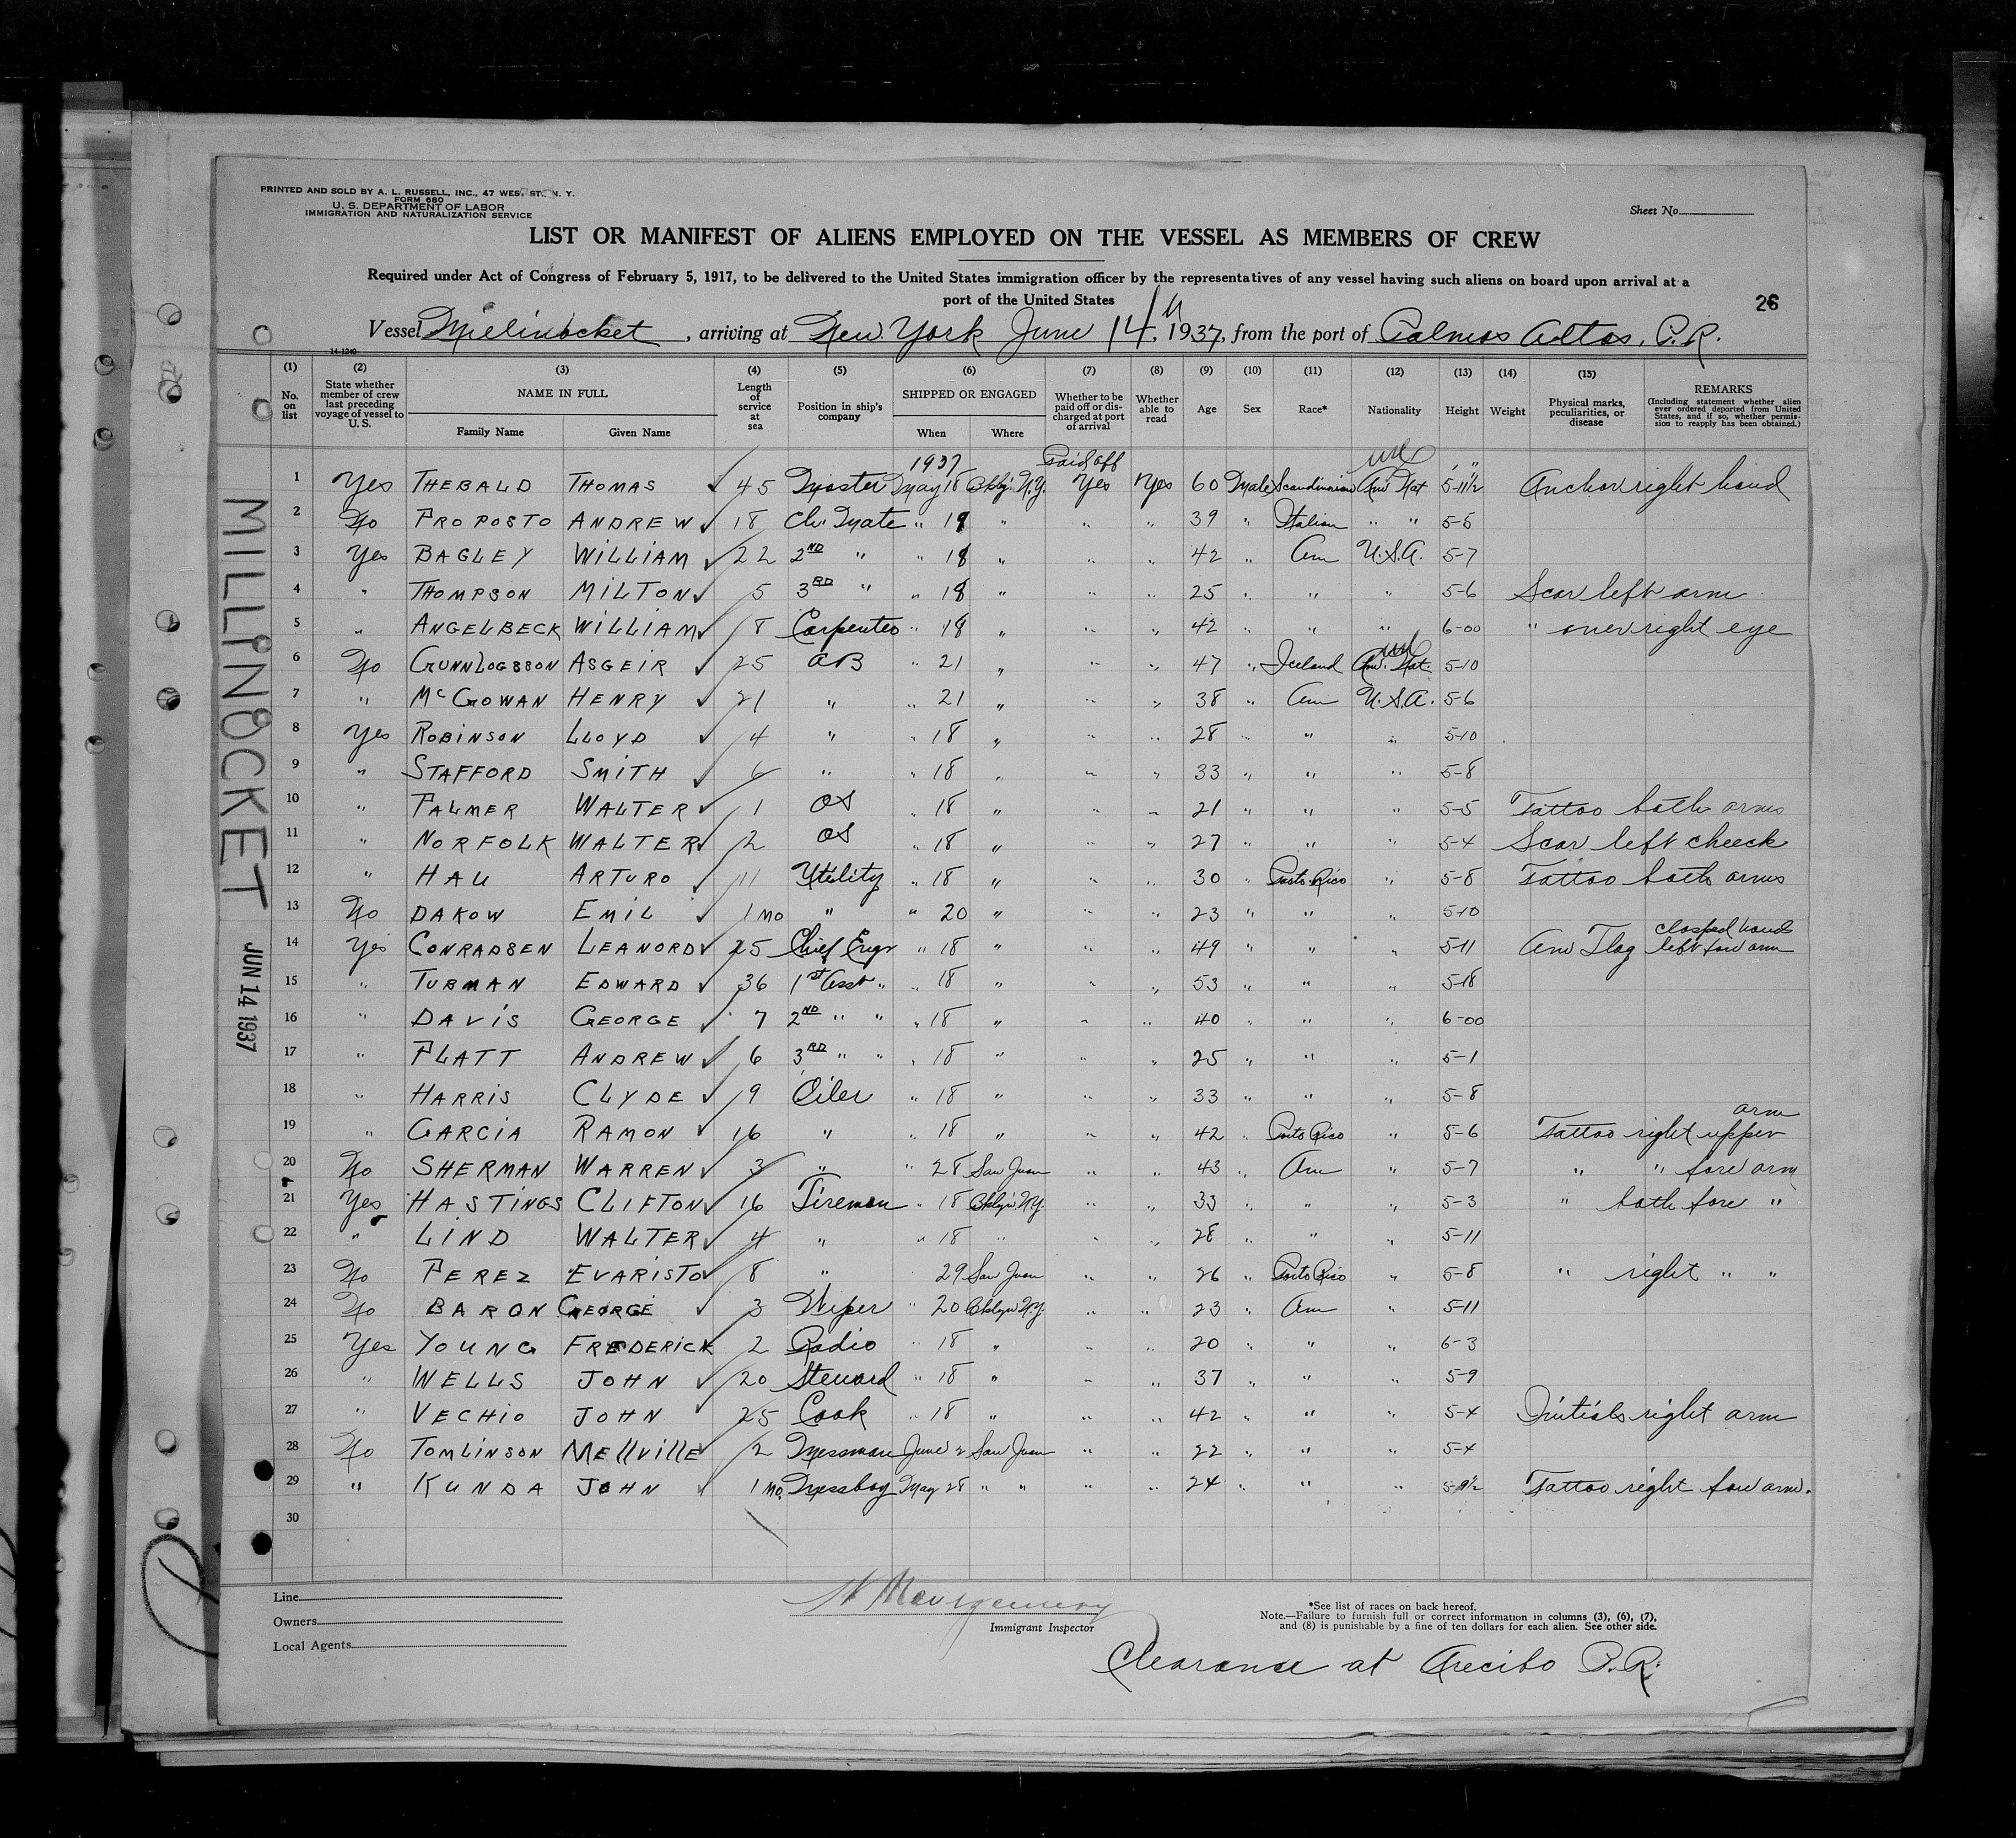 PRINTED AND SOLD BY A. L. RUSSELL, INC., 47 WEST ST., N. Y.
FORM 680
U. S. DEPARTMENT OF LABOR
IMMIGRATION AND NATURALIZATION SERVICE
Sheet No.
LIST OR MANIFEST OF ALIENS EMPLOYED ON THE VESSEL AS MEMBERS OF CREW
Required under Act of Congress of February 5, 1917, to be delivered to the United States immigration officer by the representatives of any vessel having such aliens on board upon arrival at a
port of the United States
26
Vessel Millinocket, arriving at New York June 14, 1937, from the port of Palmas Altas, P.R.
14-1240
(1) (2) (3) (4) (5) (6) (7) (8) (9) (10) (11) (12) (13) (14) (15)
No. on list
State whether member of crew last preceding voyage of vessel to U. S.
NAME IN FULL
Family Name Given Name
Length of service at sea
Position in ship's company
SHIPPED OR ENGAGED
When Where
Whether to be paid off or discharged at port of arrival
Whether able to read
Age Sex Race* Nationality Height Weight
Physical marks, peculiarities, or disease
REMARKS
(Including statement whether alien ever ordered deported from United States, and if so, whether permission to reapply has been obtained.)
1937 Paid off
1 Yes THEBALD THOMAS 45 Master May 18 Bklyn N.Y. Yes Yes 60 Male Scandinavian Am Nat 5-11½ Anchor right hand
2 No PROPOSTO ANDREW 18 Ch. Mate " 19 " " " 39 " Italian " " 5-5
3 Yes BAGLEY WILLIAM 22 2ND " " 18 " " " 42 " Am U.S.A. 5-7
4 " THOMPSON MILTON 5 3RD " " 18 " " " 25 " " " 5-6 Scar left arm
5 " ANGELBECK WILLIAM 8 Carpenter " 18 " " " 42 " " " 6-00 " over right eye
6 No GUNNLOGSSON ASGEIR 25 AB " 21 " " " 47 " Iceland Am. Nat. 5-10
7 " McGOWAN HENRY 21 " " 21 " " " 38 " Am U.S.A. 5-6
8 Yes ROBINSON LLOYD 4 " " 18 " " " 28 " " " 5-10
9 " STAFFORD SMITH 6 " " 18 " " " 33 " " " 5-8
10 " PALMER WALTER 1 OS " 18 " " " 21 " " " 5-5 Tattoo both arms
11 " NORFOLK WALTER 2 OS " 18 " " " 27 " " " 5-4 Scar left cheeck
12 " HAU ARTURO 11 Utility " 18 " " " 30 " Porto Rico " 5-8 Tattoo both arms
13 No DAKOW EMIL 1 MO " " 20 " " " 23 " " " 5-10
14 Yes CONRADSEN LEANORD 25 Chief Engr " 18 " " " 49 " " " 5-11 Am Flag clasped hands left fore arm
15 " TUBMAN EDWARD 36 1st Asst " " 18 " " " 53 " " " 5-18
16 " DAVIS GEORGE 7 2ND " " " 18 " " " 40 " " " 6-00
17 " PLATT ANDREW 6 3RD " " " 18 " " " 25 " " " 5-1
18 " HARRIS CLYDE 9 Oiler " 18 " " " 33 " " " 5-8
19 " GARCIA RAMON 16 " " 18 " " " 42 " Porto Rico " 5-6 Tattoo right upper arm
20 No SHERMAN WARREN 3 " " 28 San Juan " " 43 " Am " 5-7 " " fore arm
21 Yes HASTINGS CLIFTON 16 Fireman " 18 Bklyn N.Y. " " 33 " " " 5-3 " both fore "
22 " LIND WALTER 4 " " 18 " " " 28 " " " 5-11
23 No PEREZ EVARISTO 8 " 29 San Juan " " 26 " Porto Rico " 5-8 " right " "
24 No BARON GEORGE 3 Wiper " 20 Bklyn N.Y. " " 23 " Am " 5-11
25 Yes YOUNG FREDERICK 2 Radio " 18 " " " 20 " " " 6-3
26 " WELLS JOHN 20 Steward " 18 " " " 37 " " " 5-9
27 " VECHIO JOHN 25 Cook " 18 " " " 42 " " " 5-4 Initials right arm
28 No TOMLINSON MELLVILLE 2 Messman June 2 San Juan " " 22 " " " 5-4
29 " KUNDA JOHN 1 mo. Messboy May 28 " " " " 24 " " " 5-9½ Tattoo right fore arm.
30
MILLINOCKET
JUN 14 1937
Line
Owners
Local Agents
Immigrant Inspector
*See list of races on back hereof.
Note.—Failure to furnish full or correct information in columns (3), (6), (7),
and (8) is punishable by a fine of ten dollars for each alien. See other side.
Clearance at Arecibo P.R.